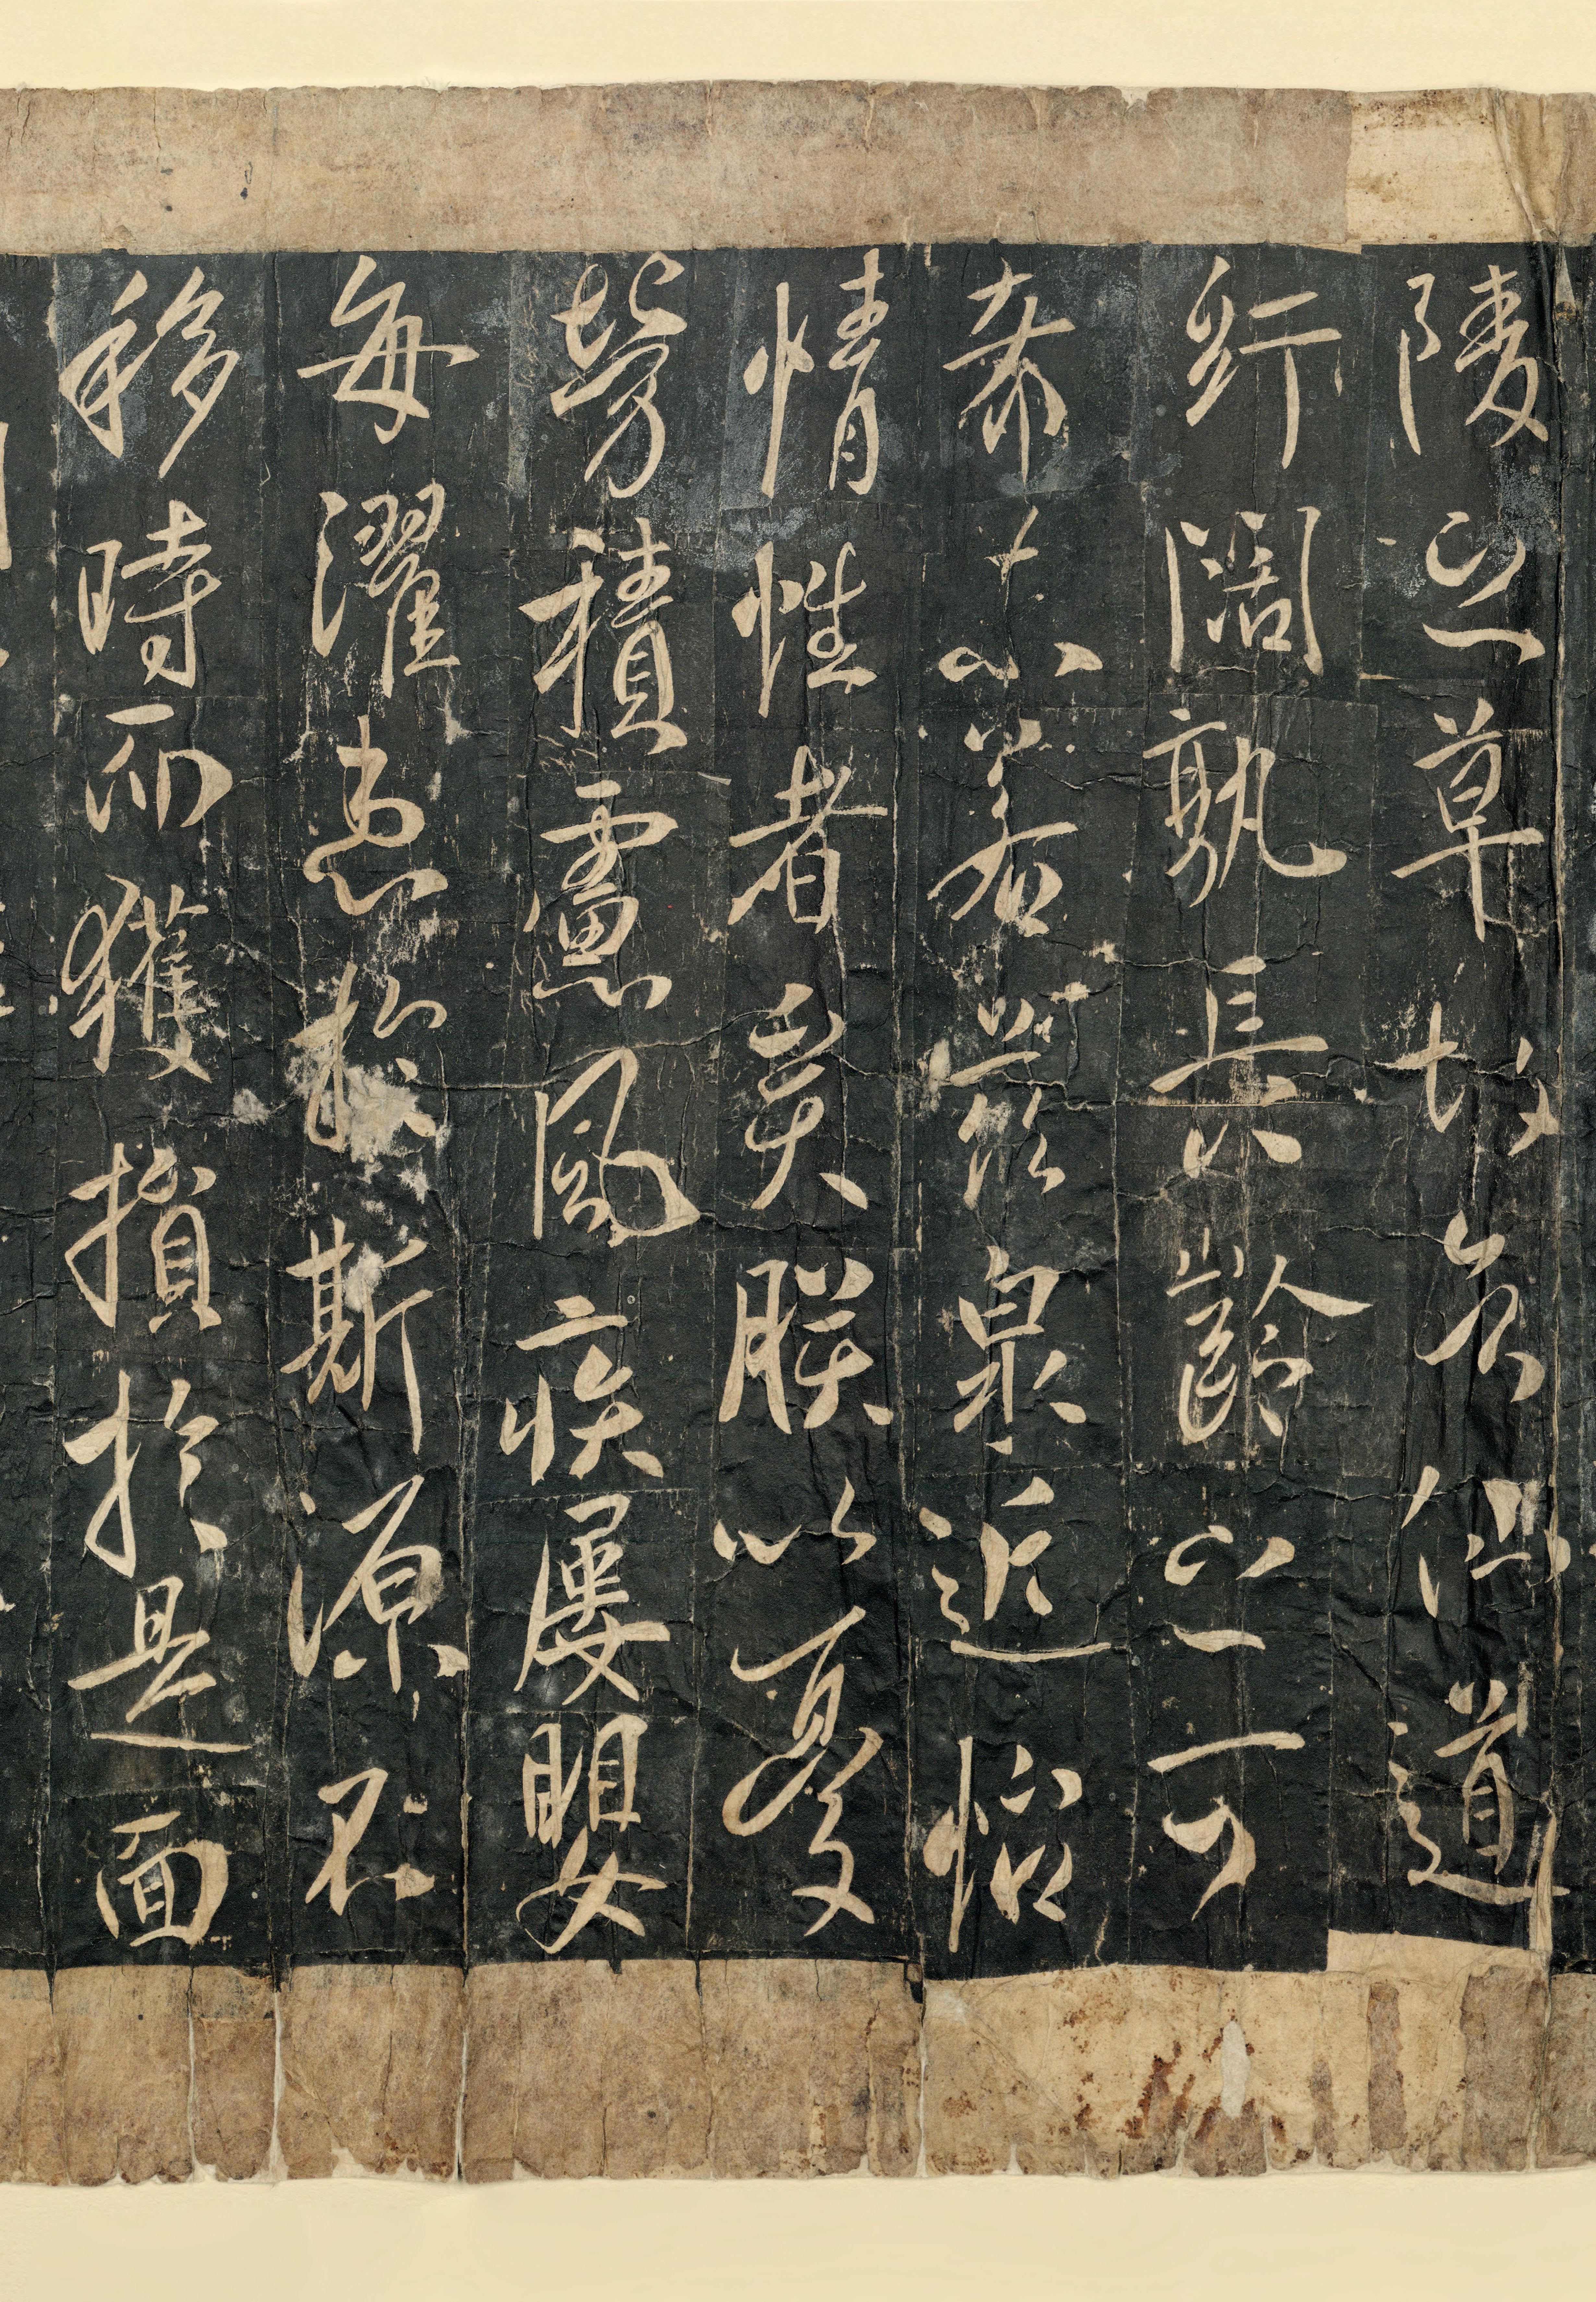 陵之草故仙道
紆闊孰長齡之可
希若茲泉近怡
情性者矣朕以憂
勞積慮風疾屢嬰
每濯患於斯源不
移時而獲損於是面